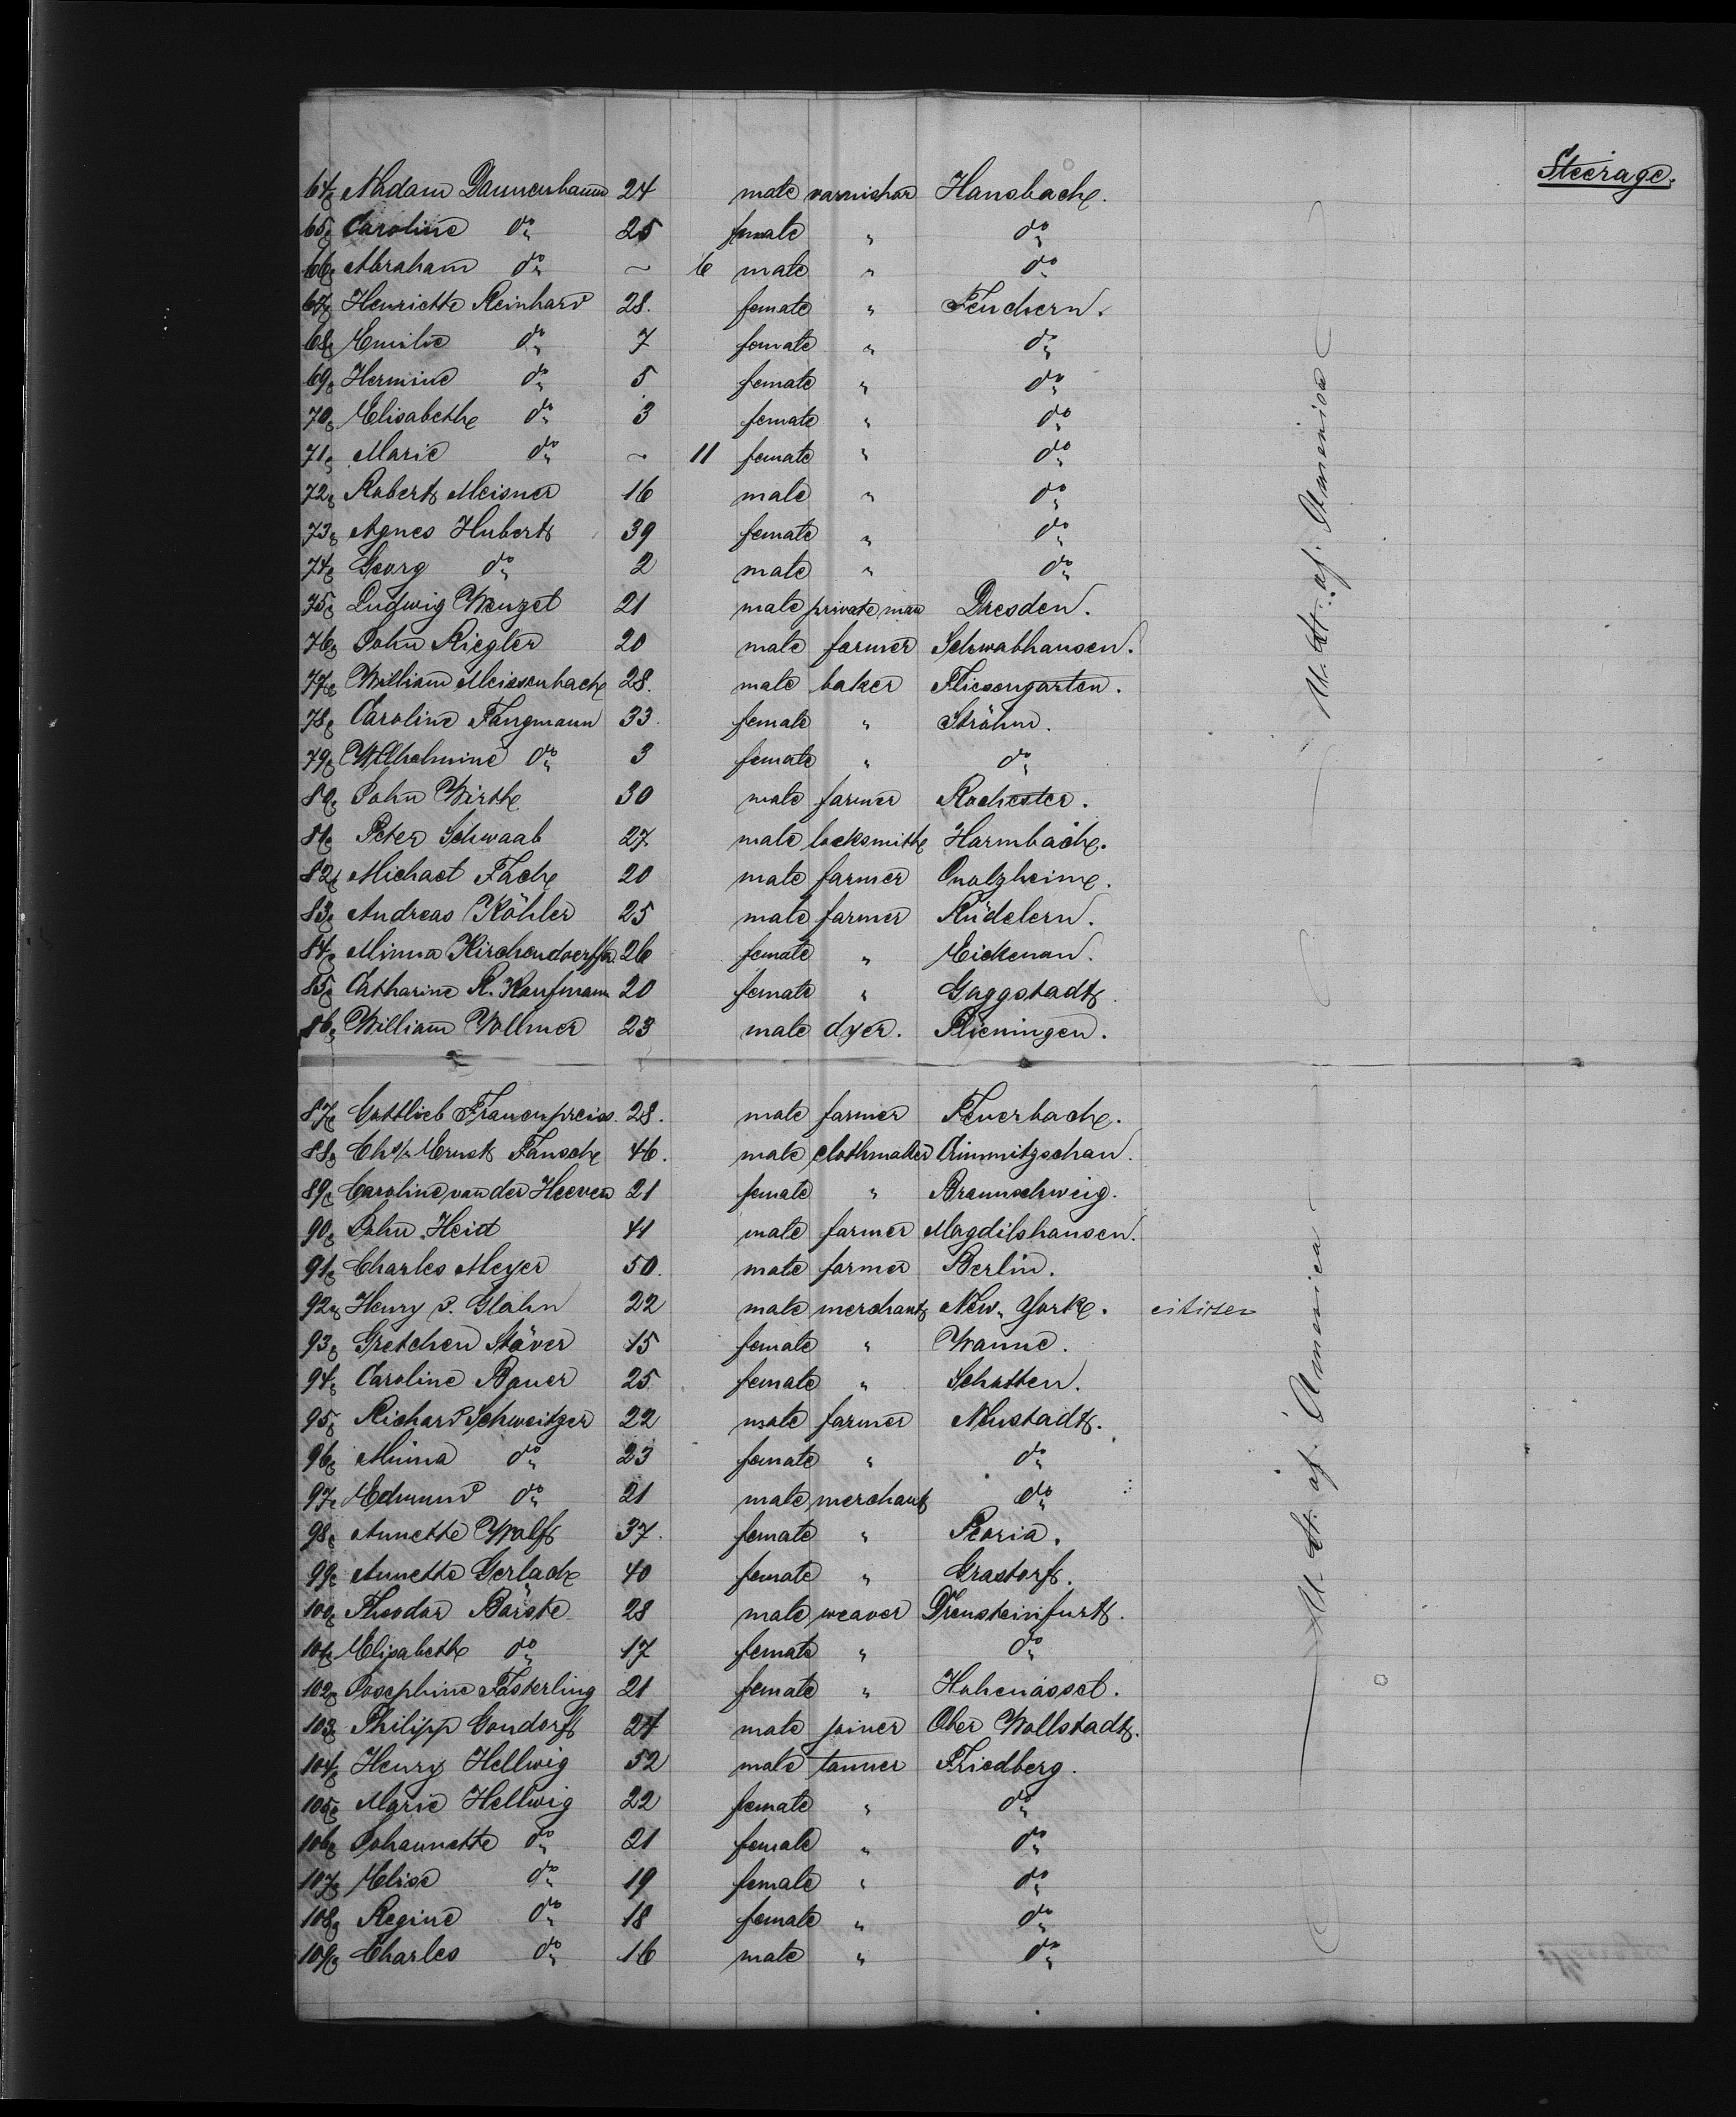 Steerage.
64, Adam Dannenbaum 24 male varnisher Hansbach.
65, Caroline do 25 female " do
66, Abraham do ~ 6 male " do
67, Henriette Reinhard 28. female " Teuchern.
68, Emilie do 7 female " do
69, Hermine do 5 female " do
70, Elisabeth do 3 female " do
71, Marie do ~ 11 female " do
72, Robert Meisner 16 male " do
73, Agnes Hubert 39 female " do
74, Georg do 2 male " do
75, Ludwig Wenzel 21 male private man Dresden.
76, John Riegler 20 male farmer Schwabhausen.
77, William Meissenbach 28. male baker Fliesengarten.
78, Caroline Fangmann 33. female " Ströhm.
79, Wilhelmine do 3 female " do
80, John Wirth 30 male farmer Rochester.
81, Peter Schwaab 27 male locksmith Harmbach.
82, Michael Fach 20 male farmer Onolzheim.
83, Andreas Köhler 25 male farmer Rüdelern.
84, Minna Kirchendoerffer 26 female " Eickenau.
85, Catharine R. Kaufmann 20 female " Gaggstadt.
86, William Vollmer 23 male dyer. Plieningen.
87, Gottlieb Frauenpreiss. 28. male farmer Feuerbach.
88, Chr. Ernst Fansch 46. male clothmaker Crimmitzschau.
89, Caroline van der Heeven 21 female " Braunschweig.
90, John Heid 41 male farmer Magdilshausen.
91, Charles Meyer 50. male farmer Berlin.
92, Henry v. Glahn 22 male merchant New-York. citizen
93, Gretchen Stöver 15 female " Wanne.
94, Caroline Bauer 25 female " Schotten.
95, Richard Schweitzer 22 male farmer Neustadt.
96, Minna do 23 female " do
97, Edmund do 21 male merchant do
98, Annette Wolff 37. female " Peoria.
99, Annette Gerlach 40 female " Grastorf.
100, Theodor Börste 28 male weaver Drensteinfurt.
101, Elisabeth do 17 female " do
102, Josephine Fasterling 21 female " Hohenassel.
103, Philipp Gondorf 24 male joiner Ober Wollstadt.
104, Henry Hellwig 52 male tanner Friedberg.
105, Marie Hellwig 22 female " do
106, Johannette do 21 female " do
107, Elise do 19 female " do
108, Regine do 18 female " do
109, Charles do 16 male " do
U. St. of America
U. St. of America